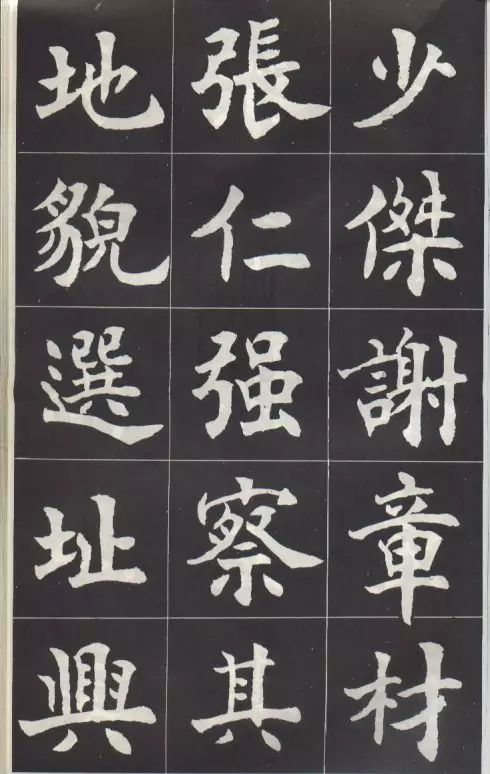 少傑謝章材
張仁强察其
地貌選址興